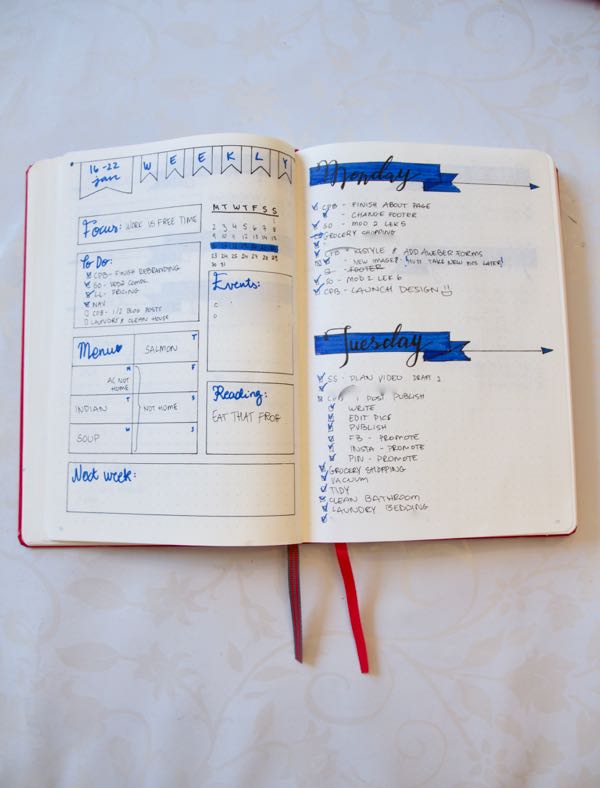 16-22
jan
WEEKLY
Focus: WORK IS FREE TIME
To Do:
CPB- FINISH REBRANDING
SO-
LL- PRICING
NAV
CPB- 1/2 BLOG POSTS
LAUNDRY & CLEAN HOUSE
Menu
SALMON T
M
AC NOT
HOME
F
INDIAN T
NOT HOME
S
SOUP W
S
Next week:
M T W T F S S
1
2 3 4 5 6 7 8
9 10 11 12 13 14 15
23 24 25 26 27 28 29
30 31
Events:
Reading:
EAT THAT FROG
Monday
CPB - FINISH ABOUT PAGE
- CHANGE FOOTER
SO - MOD 2 LEK 5
GROCERY SHOPPING
CPB - RESTYLE & ADD AWEBER FORMS
- NEW IMAGE? (MUST TAKE NEW PICS LATER)
- FOOTER
SO - MOD 2 LEK 6
CPB - LAUNCH DESIGN
Tuesday
SS - PLAN VIDEO DRAFT 2
1 POST PUBLISH
WRITE
EDIT PICS
PUBLISH
FB - PROMOTE
INSTA - PROMOTE
PIN - PROMOTE
GROCERY SHOPPING
VACUUM
TIDY
CLEAN BATHROOM
LAUNDRY BEDDING